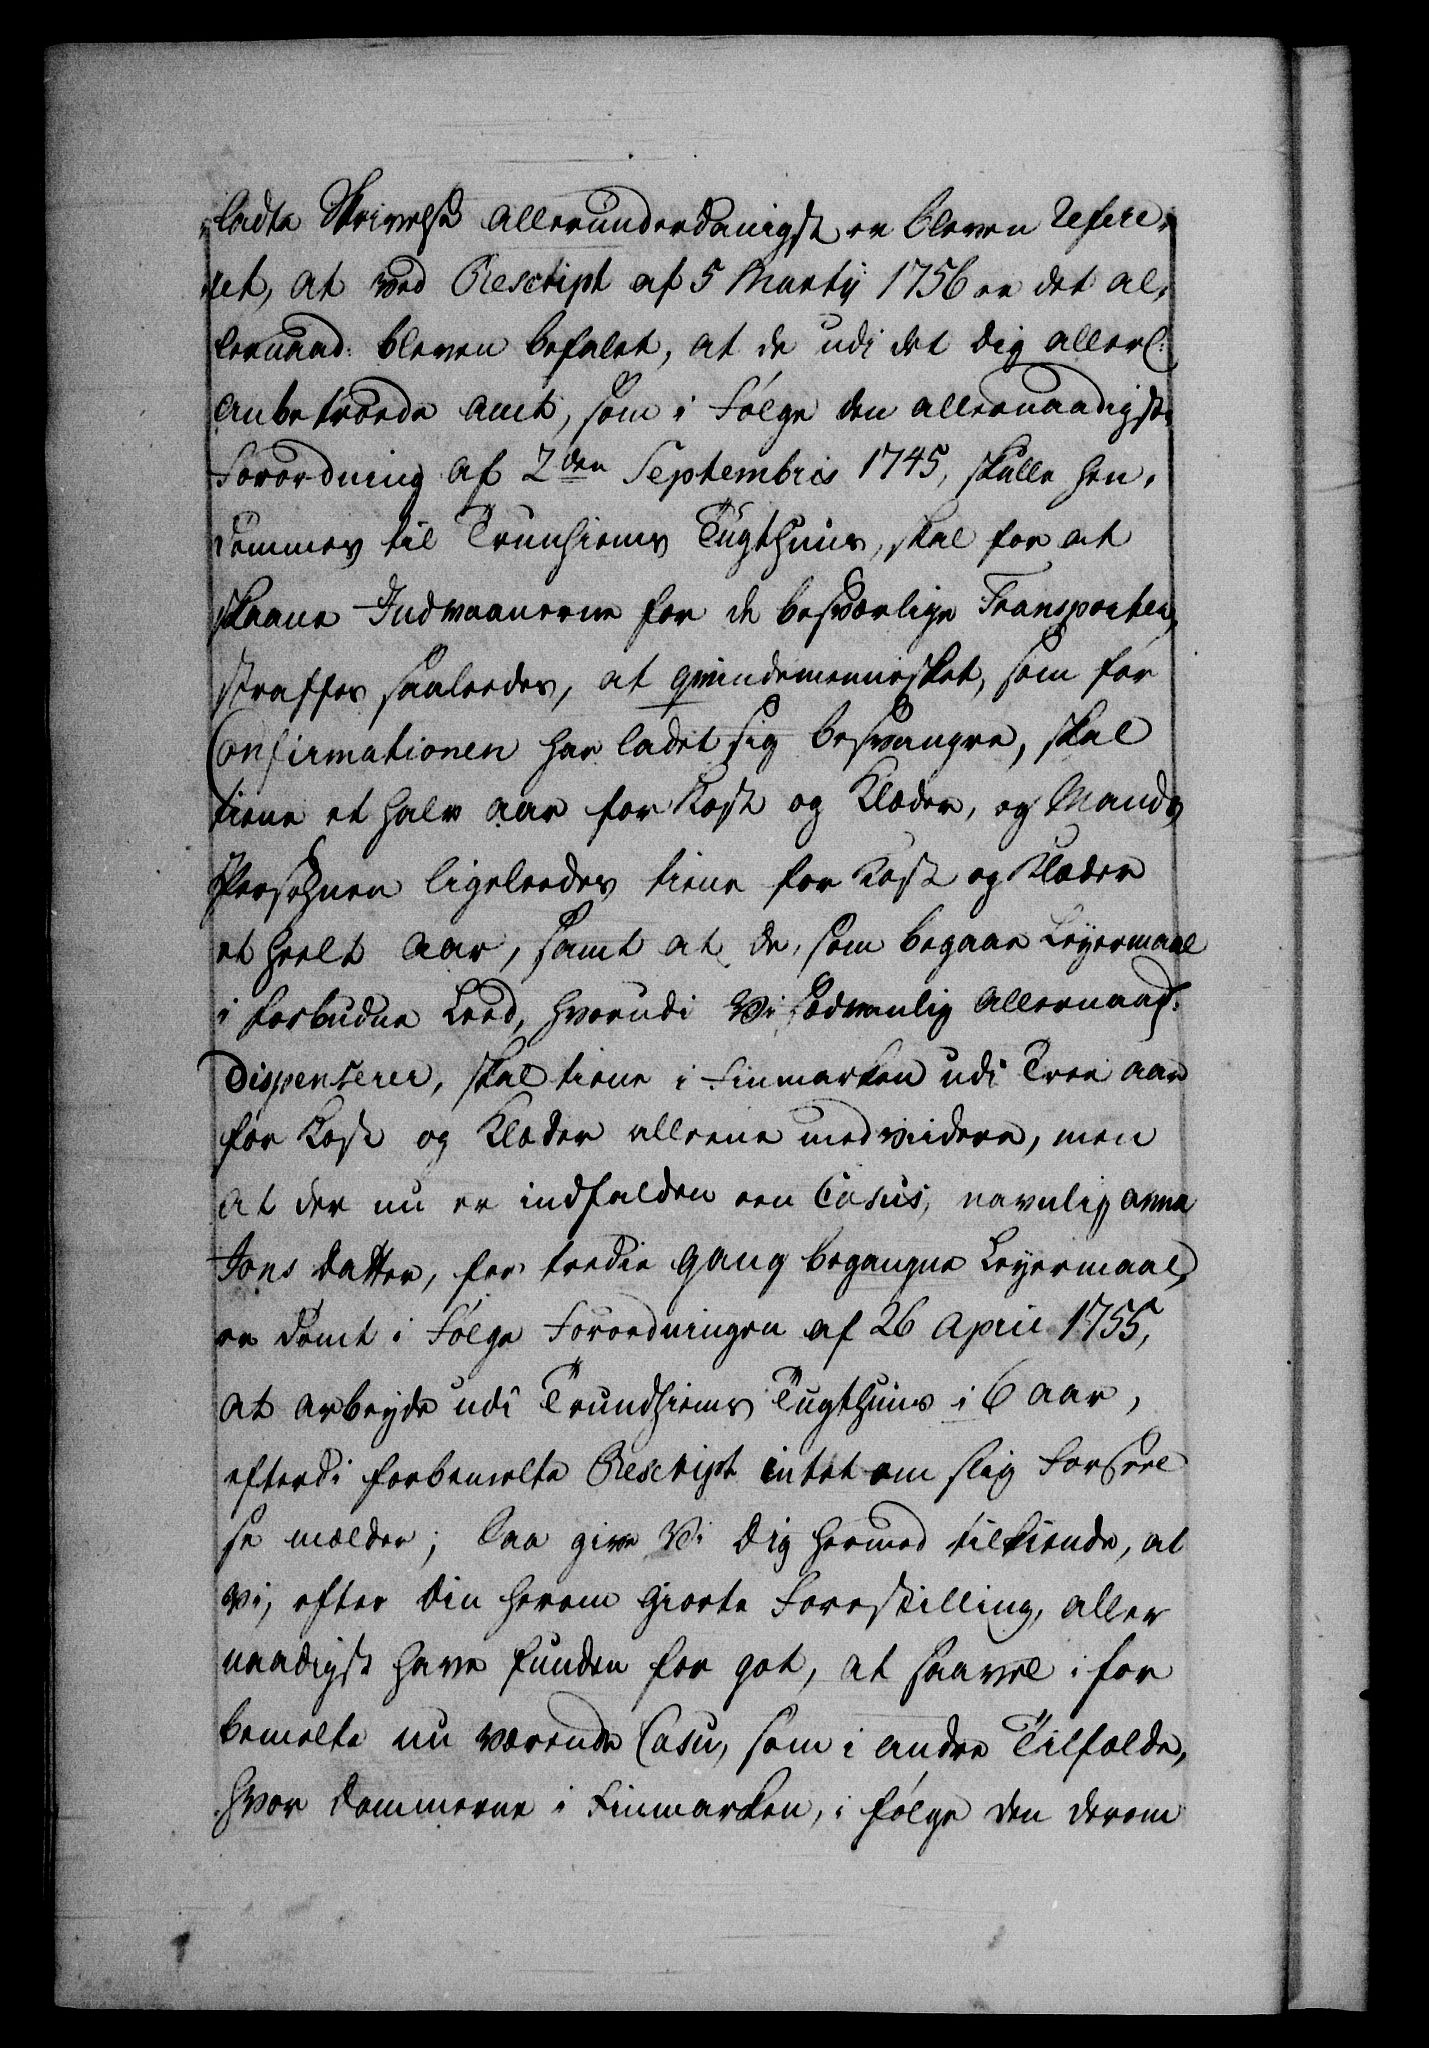 ladte Skrivelse allerunderdanigst er bleven refere,
ret, at ved Rescript af 5 Martij 1756 er det al,
lernaad: bleven befalet, at de udi det dig allerl:
anbetroede Amt, som i Følge den allernaadigste
Forordning af 2den Septembris 1745, skulle hen,
dømmes til Trunhiems Tugthuus, skal for at
skaane Indvaanerne for de besværlige Transporter,
straffes saaleedes, at qvindemennisket, som før
Confirmationen har ladet sig besvangre, skal
tiene et halv aar for Kost og Klæder, og Mands
Persohnen ligeleedes tiene for Kost og Klæder
et heelt Aar, samt at de, som begaar Leyermaal
i forbudne Leed, hvorudi Vi sædvanlig allernaad:
Dispenserer, skal tiene i Finmarken udi Tree aar
for Kost og Klæder alleene med viidere, men
at der nu er indfalden een Casus, navnlig Anna
Jons Datter, for tredie gang begangne Leyermaal,
er dømt i Følge Forordningen af 26 April 1755,
at arbeyde udi Trundhiems Tugthuus i 6 aar,
efterdi forbemelte Rescript intet om slig Forseel
se melder; Saa give Vi dig hermed tilkiende, at
Vi, efter din herom giorte Forestilling, aller
naadigst have funden for got, at saavel i for
bemelte nu værende Casu, som i andre Tilfælde,
hvor Dommerne i Finmarken, i følge den derom